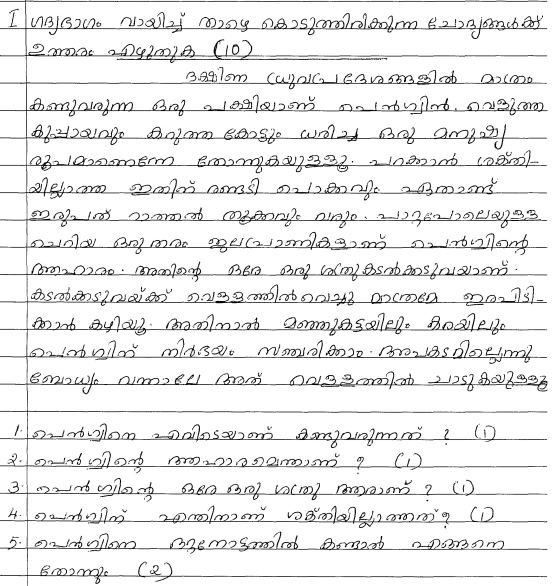 I ഗദ്യഭാഗം വായിച്ച് താഴെ കൊടുത്തിരിക്കുന്ന ചോദ്യങ്ങൾക്ക്
ഉത്തരം എഴുതുക (10)
ദക്ഷിണ ധ്രുവപ്രദേശങ്ങളിൽ മാത്രം
കണ്ടുവരുന്ന ഒരു പക്ഷിയാണ് പെൻഗ്വിൻ. വെളുത്ത
കുപ്പായവും കറുത്ത കോട്ടും ധരിച്ച ഒരു മനുഷ്യ
രൂപമാണെന്നേ തോന്നുകയുള്ളൂ. പറക്കാൻ ശക്തി-
യില്ലാത്ത ഇതിന് രണ്ടടി പൊക്കവും ഏതാണ്ട്
ഇരുപത് റാത്തൽ തൂക്കവും വരും. പാറ്റപോലെയുള്ള
ചെറിയ ഒരുതരം ജലപ്രാണികളാണ് പെൻഗ്വിന്റെ
ആഹാരം. അതിന്റെ ഒരേ ഒരു ശത്രു കടൽക്കടുവയാണ്.
കടൽക്കടുവയ്ക്ക് വെള്ളത്തിൽവെച്ചു മാത്രമേ ഇരപിടി-
ക്കാൻ കഴിയൂ. അതിനാൽ മഞ്ഞുകട്ടയിലും കരയിലും
പെൻഗ്വിന് നിർഭയം സഞ്ചരിക്കാം. അപകടമില്ലെന്നു
ബോധ്യം വന്നാലേ അത് വെള്ളത്തിൽ ചാടുകയുള്ളൂ
1. പെൻഗ്വിനെ എവിടെയാണ് കണ്ടുവരുന്നത് ? (1)
2. പെൻഗ്വിന്റെ ആഹാരമെന്താണ് ? (1)
3. പെൻഗ്വിന്റെ ഒരേ ഒരു ശത്രു ആരാണ് ? (1)
4. പെൻഗ്വിന് എന്തിനാണ് ശക്തിയില്ലാത്തത് ? (1)
5. പെൻഗ്വിനെ ഒറ്റനോട്ടത്തിൽ കണ്ടാൽ എങ്ങനെ
തോന്നും (2)